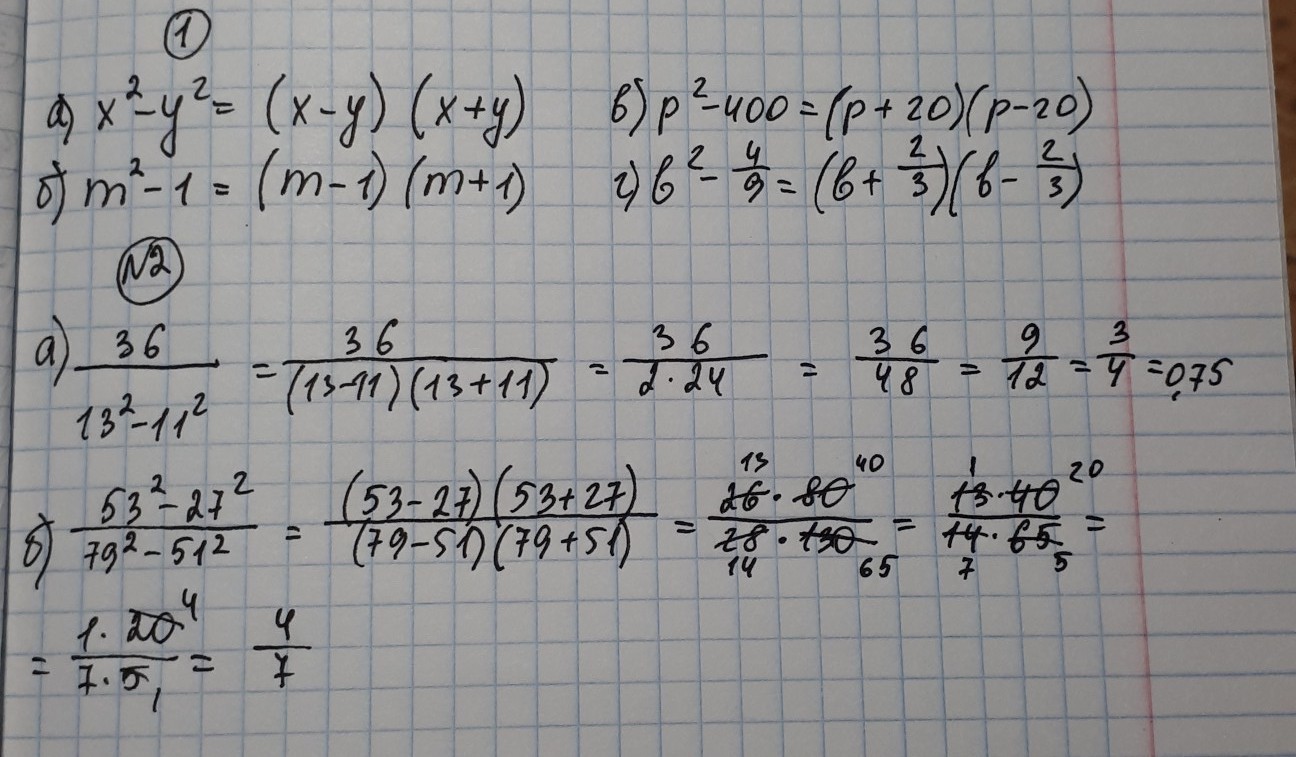 1
а) x² - y² = (x - y) (x + y) в) p² - 400 = (p + 20)(p - 20)
б) m² - 1 = (m - 1) (m + 1) г) b² - 4/9 = (b + 2/3)(b - 2/3)
N2
а) 36/(13² - 11²) = 36/((13-11)(13+11)) = 36/(2·24) = 36/48 = 9/12 = 3/4 = 0,75
б) (53² - 27²)/(79² - 51²) = ((53-27)(53+27))/((79-51)(79+51)) = (26·80)/(28·130) 13 40 14 65 = (13·40)/(14·65) 1 20 7 5 =
= (1·20)/(7·5) 4 1 = 4/7